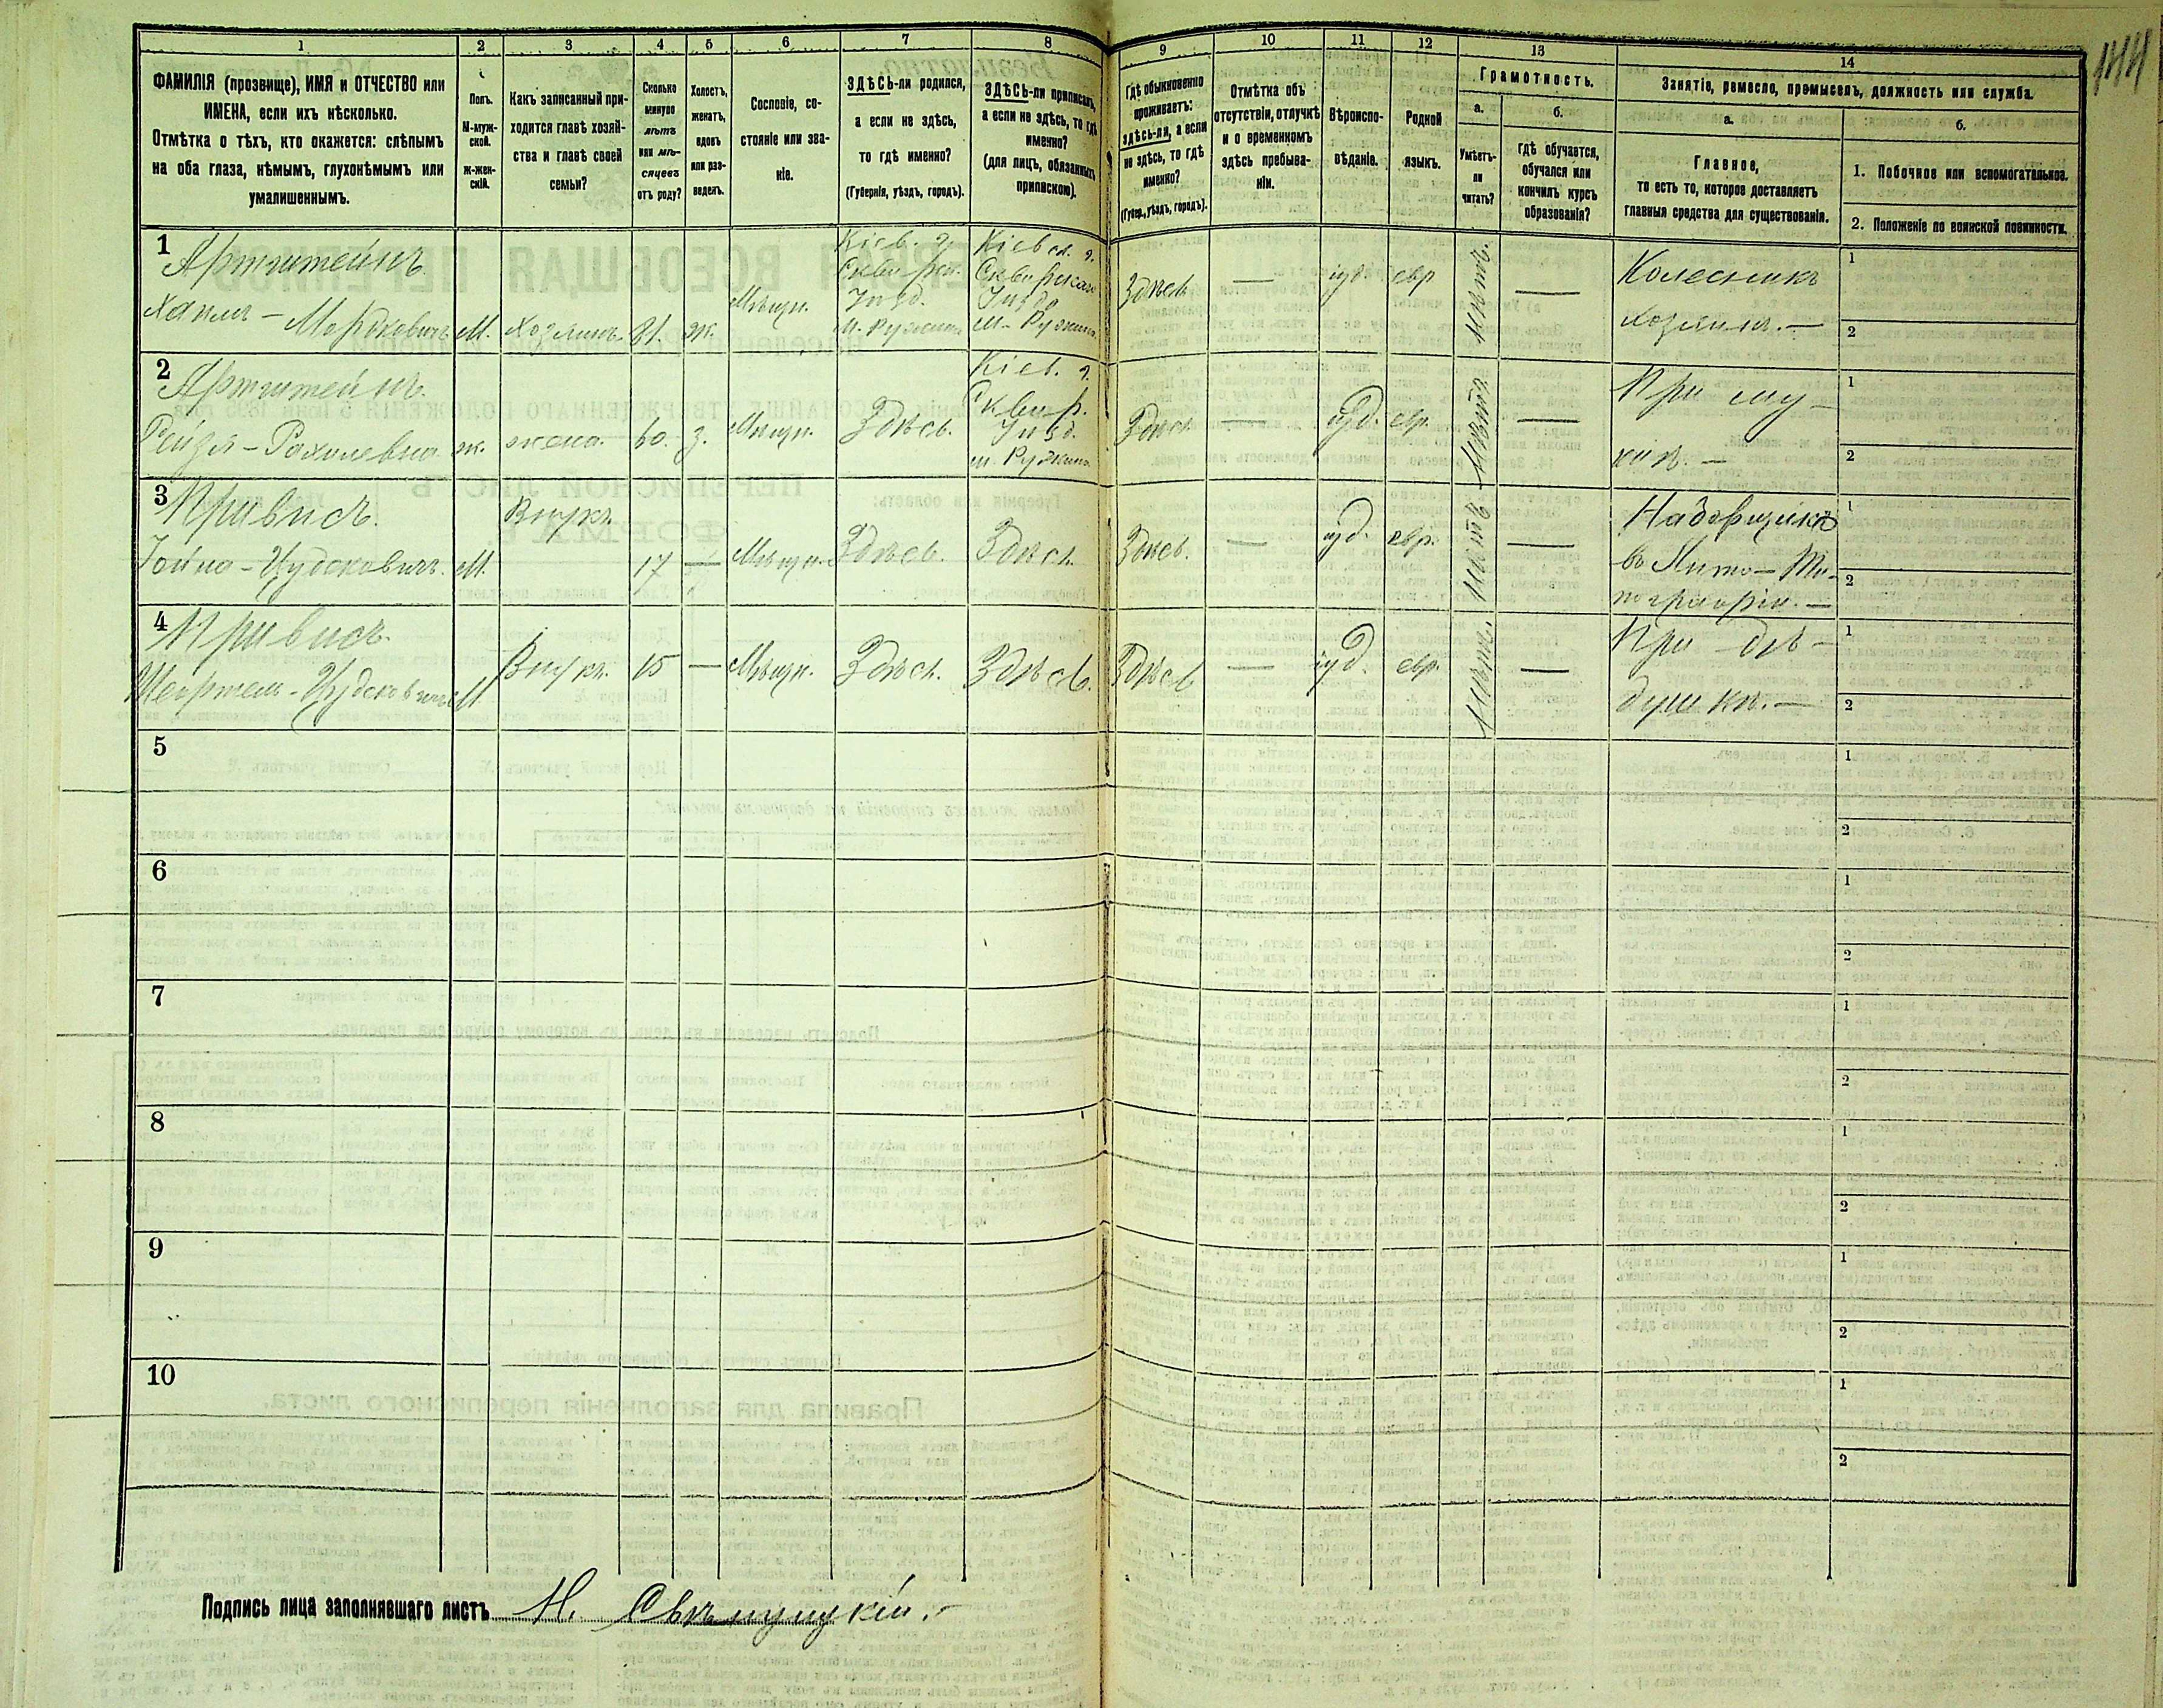 1 2 3 4 5 6 7 8 9 10 11 12 13 14
144
ФАМИЛІЯ (прозвище), ИМЯ и ОТЧЕСТВО или
ИМЕНА, если ихъ нѣсколько.
Отмѣтка о тѣхъ, кто окажется: слѣпымъ
на оба глаза, нѣмымъ, глухонѣмымъ или
умалишеннымъ.
Полъ.
М-муж-
ской.
ж-жен-
скій.
Какъ записанный при-
ходится главѣ хозяй-
ства и главѣ своей
семьи?
Сколько
минуло
лѣтъ
или мѣ-
сяцевъ
отъ роду?
Холостъ,
женатъ,
вдовъ
или раз-
веденъ.
Сословіе, со-
стояніе или зва-
ніе.
ЗДѢСЬ-ли родился,
а если не здѣсь,
то гдѣ именно?
(Губернія, уѣздъ, городъ).
ЗДѢСЬ-ли приписанъ,
а если не здѣсь, то гдѣ
именно?
(для лицъ, обязанныхъ
припискою).
Гдѣ обыкновенно
проживаетъ:
здѣсь-ли, а если
не здѣсь, то гдѣ
именно?
(Губер., уѣздъ, городъ).
Отмѣтка объ
отсутствіи, отлучкѣ
и о временномъ
здѣсь пребыва-
ніи.
Вѣроиспо-
вѣданіе.
Родной
языкъ.
Грамотность.
а.
Умѣетъ-
ли
читать?
б.
гдѣ обучается,
обучался или
кончилъ курсъ
образованія?
Занятіе, ремесло, промыселъ, должность или служба.
а.
Главное,
то есть то, которое доставляетъ
главныя средства для существованія.
б.
1. Побочное или вспомогательное.
2. Положеніе по воинской повинности.
1
Хаимъ - Мордковичъ
М.
Хозяинъ.
ж.
Мѣщан.
Кіев. г.
Сквирск.
Уѣзд.
м. Ружинъ
Кіевск. г.
Сквирскаго
Уѣзда
м. Ружина
Здѣсь
—
іуд.
евр
нѣтъ.
—
Колесникъ
хозяинъ. —
1
2
2
Рейзя -
ж.
жена.
60.
з.
Мѣщан.
Здѣсь.
Кіев. г.
Сквир.
Уѣзд.
м. Ружина
Здѣсь
—
іуд.
евр.
нѣтъ
—
При му-
жѣ. —
1
2
3
Привисъ.
М.
Внукъ.
17
—
Мѣщан.
Здѣсь.
Здѣсь.
Здѣсь.
—
іуд.
евр.
нѣтъ
—
въ Лито - Ти-
пографіи. —
1
2
4
Привисъ.
М
Внукъ.
15
—
Мѣщан.
Здѣсь.
Здѣсь.
Здѣсь
—
іуд.
евр.
нѣтъ.
—
При дѣ-
душкѣ. —
1
2
5
1
2
6
1
2
7
1
2
8
1
2
9
1
2
10
1
2
Подпись лица заполнявшаго листъ